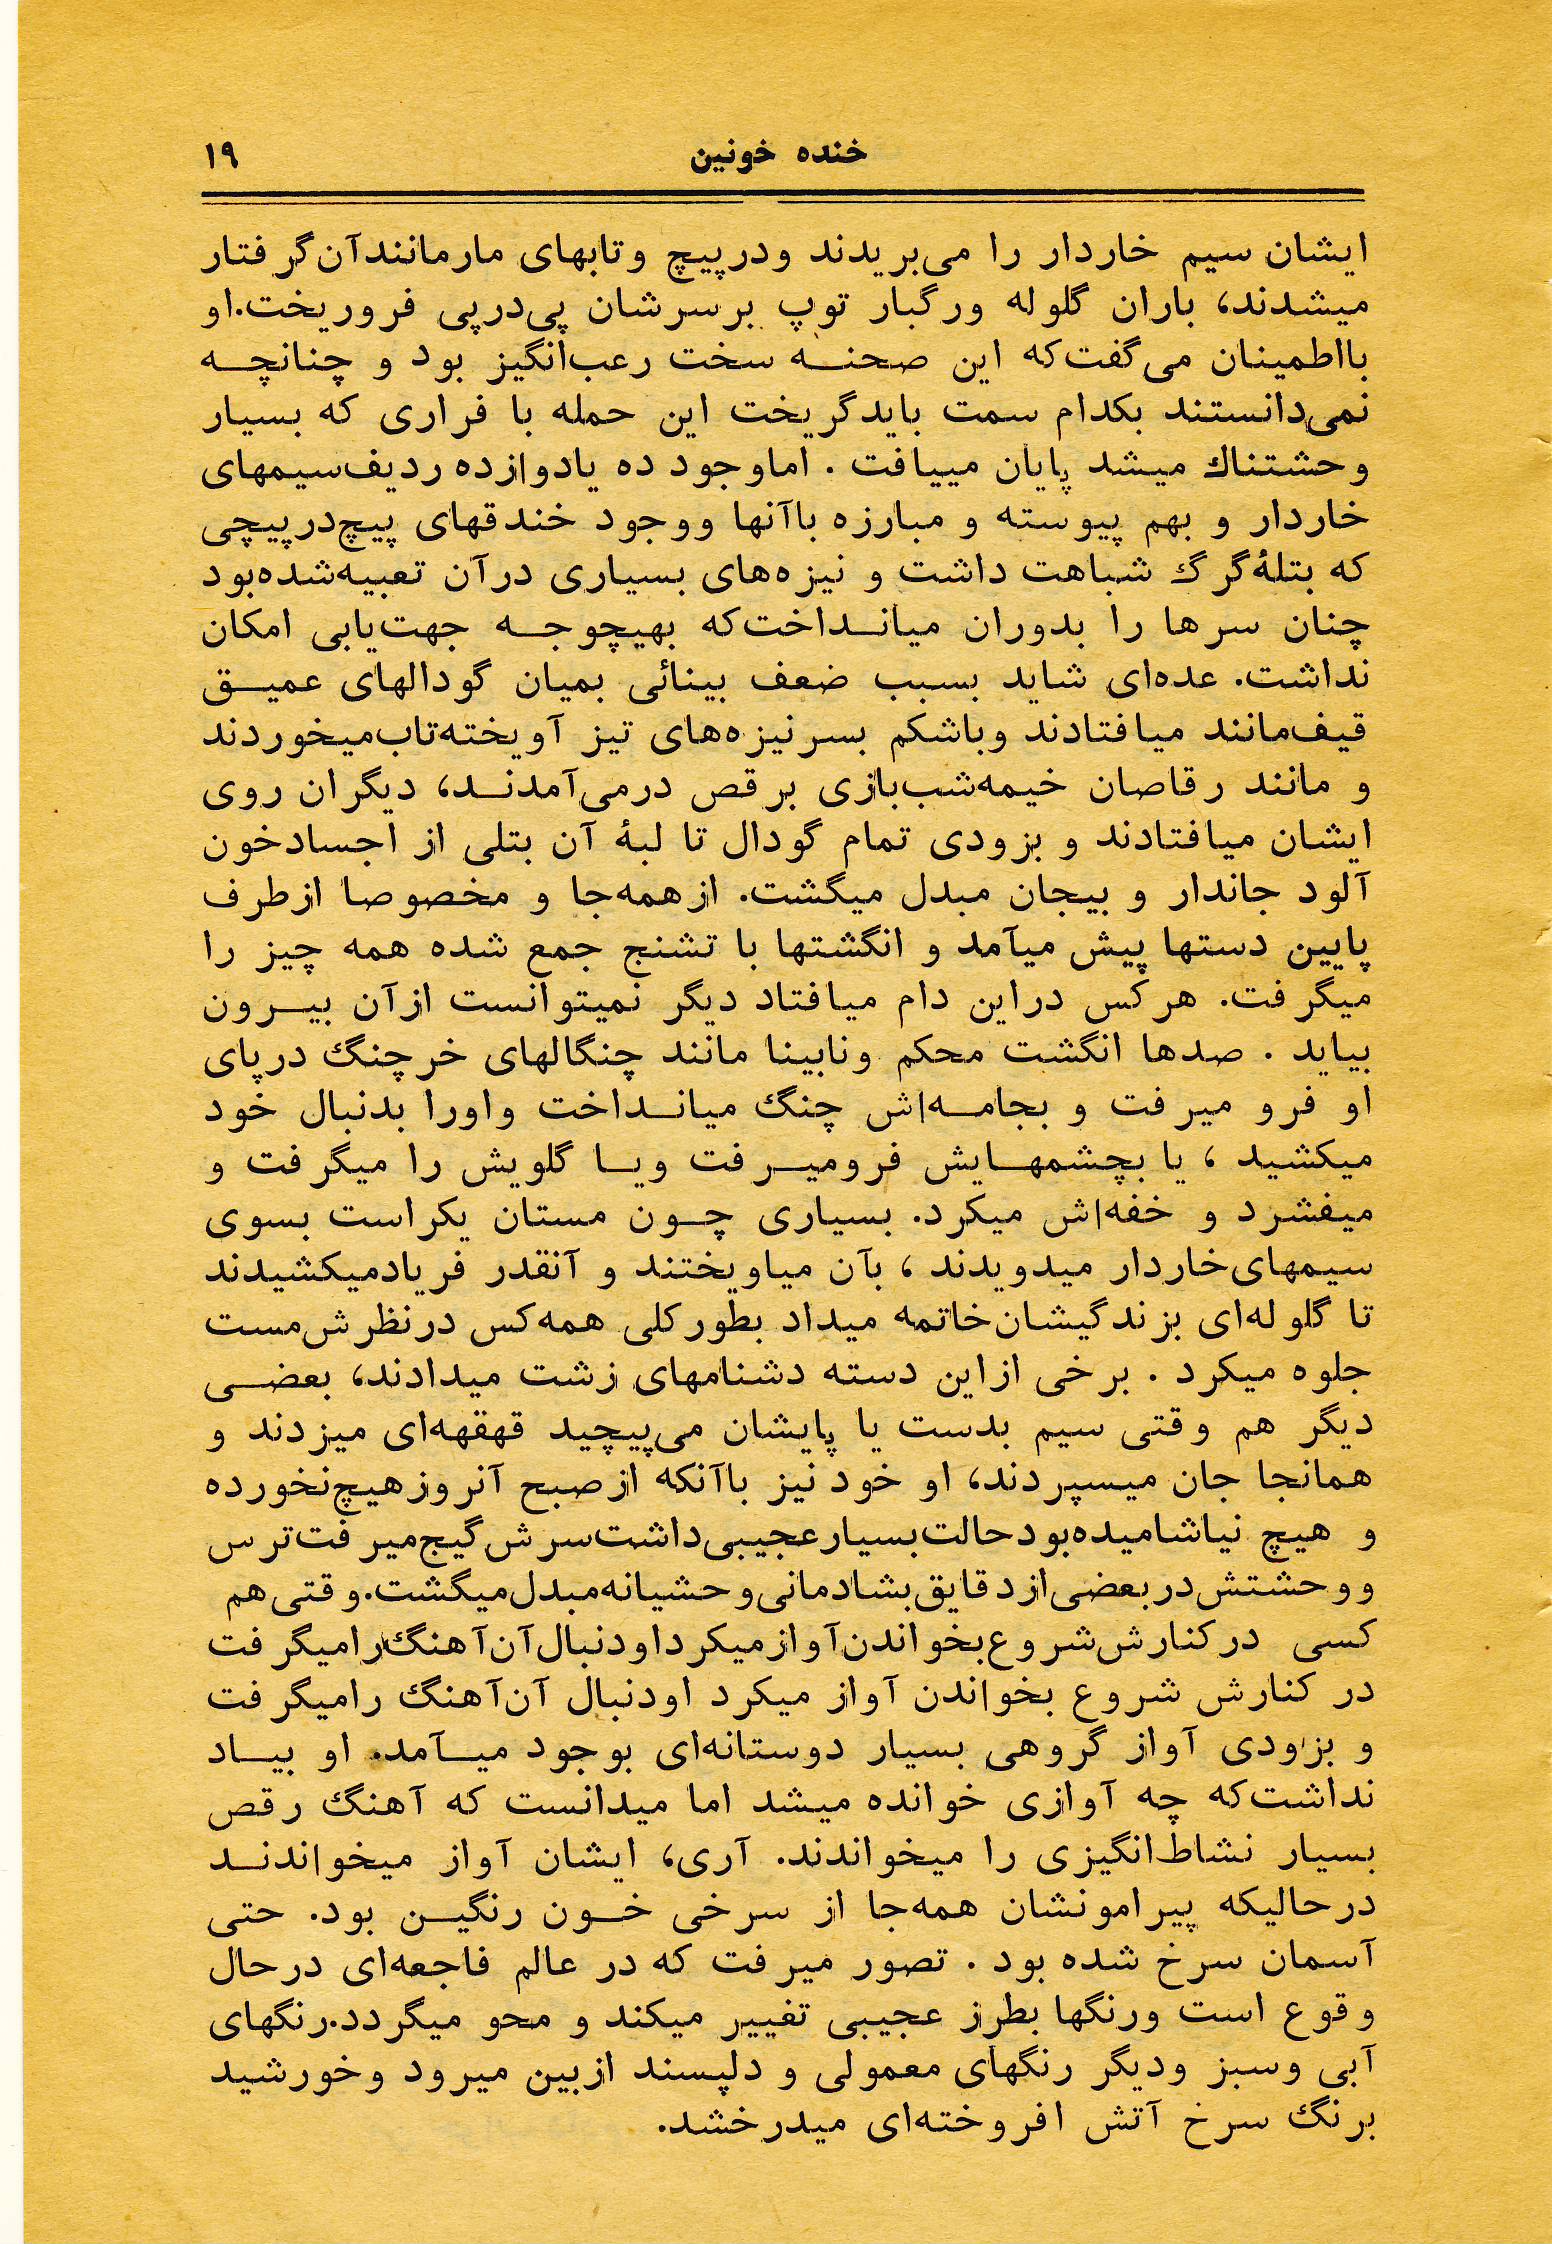 خنده خونین
۱۹
ایشان سیم خاردار را می‌بریدند ودرپیچ وتابهای مارمانندآن‌گرفتار
میشدند، باران گلوله ورگبار توپ برسرشان پی‌درپی فروریخت.او
بااطمینان می‌گفت‌که این صحنه سخت رعب‌انگیز بود و چنانچه
نمی‌دانستند بکدام سمت بایدگریخت این حمله با فراری که بسیار
وحشتناك میشد پایان مییافت . اماوجود ده یادوازده ردیف‌سیمهای
خاردار و بهم پیوسته و مبارزه باآنها ووجود خندقهای پیچ‌درپیچی
که بتلۀ‌گرگ شباهت داشت و نیزه‌های بسیاری درآن تعبیه‌شده‌بود
چنان سرها را بدوران میانداخت‌که بهیچوجه جهت‌یابی امکان
نداشت. عده‌ای شاید بسبب ضعف بینائی بمیان گودالهای عمیق
قیف‌مانند میافتادند وباشکم بسرنیزه‌های تیز آویخته‌تاب‌میخوردند
و مانند رقاصان خیمه‌شب‌بازی برقص درمی‌آمدند، دیگران روی
ایشان میافتادند و بزودی تمام گودال تا لبۀ آن بتلی از اجسادخون
آلود جاندار و بیجان مبدل میگشت. ازهمه‌جا و مخصوصا ازطرف
پایین دستها پیش میآمد و انگشتها با تشنج جمع شده همه چیز را
میگرفت. هرکس دراین دام میافتاد دیگر نمیتوانست ازآن بیرون
بیاید . صدها انگشت محکم ونابینا مانند چنگالهای خرچنگ درپای
او فرو میرفت و بجامه‌اش چنگ میانداخت واورا بدنبال خود
میکشید ، یا بچشمهایش فرومیرفت ویا گلویش را میگرفت و
میفشرد و خفه‌اش میکرد. بسیاری چون مستان یکراست بسوی
سیمهای‌خاردار میدویدند ، بآن میاویختند و آنقدر فریادمیکشیدند
تا گلوله‌ای بزندگیشان‌خاتمه میداد بطورکلی همه‌کس درنظرش‌مست
جلوه میکرد . برخی ازاین دسته دشنامهای زشت میدادند، بعضی
دیگر هم وقتی سیم بدست یا پایشان می‌پیچید قهقهه‌ای میزدند و
همانجا جان میسپردند، او خود نیز باآنکه ازصبح آنروزهیچ‌نخورده
و هیچ نیاشامیده‌بودحالت‌بسیارعجیبی‌داشت‌سرش‌گیج‌میرفت‌ترس
ووحشتش‌دربعضی‌ازدقایق‌بشادمانی‌وحشیانه‌مبدل‌میگشت.وقتی‌هم
کسی درکنارش‌شروع‌بخواندن‌آوازمیکرداودنبال‌آن‌آهنگ‌رامیگرفت
در کنارش شروع بخواندن آواز میکرد اودنبال آن‌آهنگ رامیگرفت
و بزودی آواز گروهی بسیار دوستانه‌ای بوجود میآمد. او بیاد
نداشت‌که چه آوازی خوانده میشد اما میدانست که آهنگ رقص
بسیار نشاط‌انگیزی را میخواندند. آری، ایشان آواز میخواندند
درحالیکه پیرامونشان همه‌جا از سرخی خون رنگین بود. حتی
آسمان سرخ شده بود . تصور میرفت که در عالم فاجعه‌ای درحال
وقوع است ورنگها بطرز عجیبی تغییر میکند و محو میگردد.رنگهای
آبی وسبز ودیگر رنگهای معمولی و دلپسند ازبین میرود وخورشید
برنگ سرخ آتش افروخته‌ای میدرخشد.